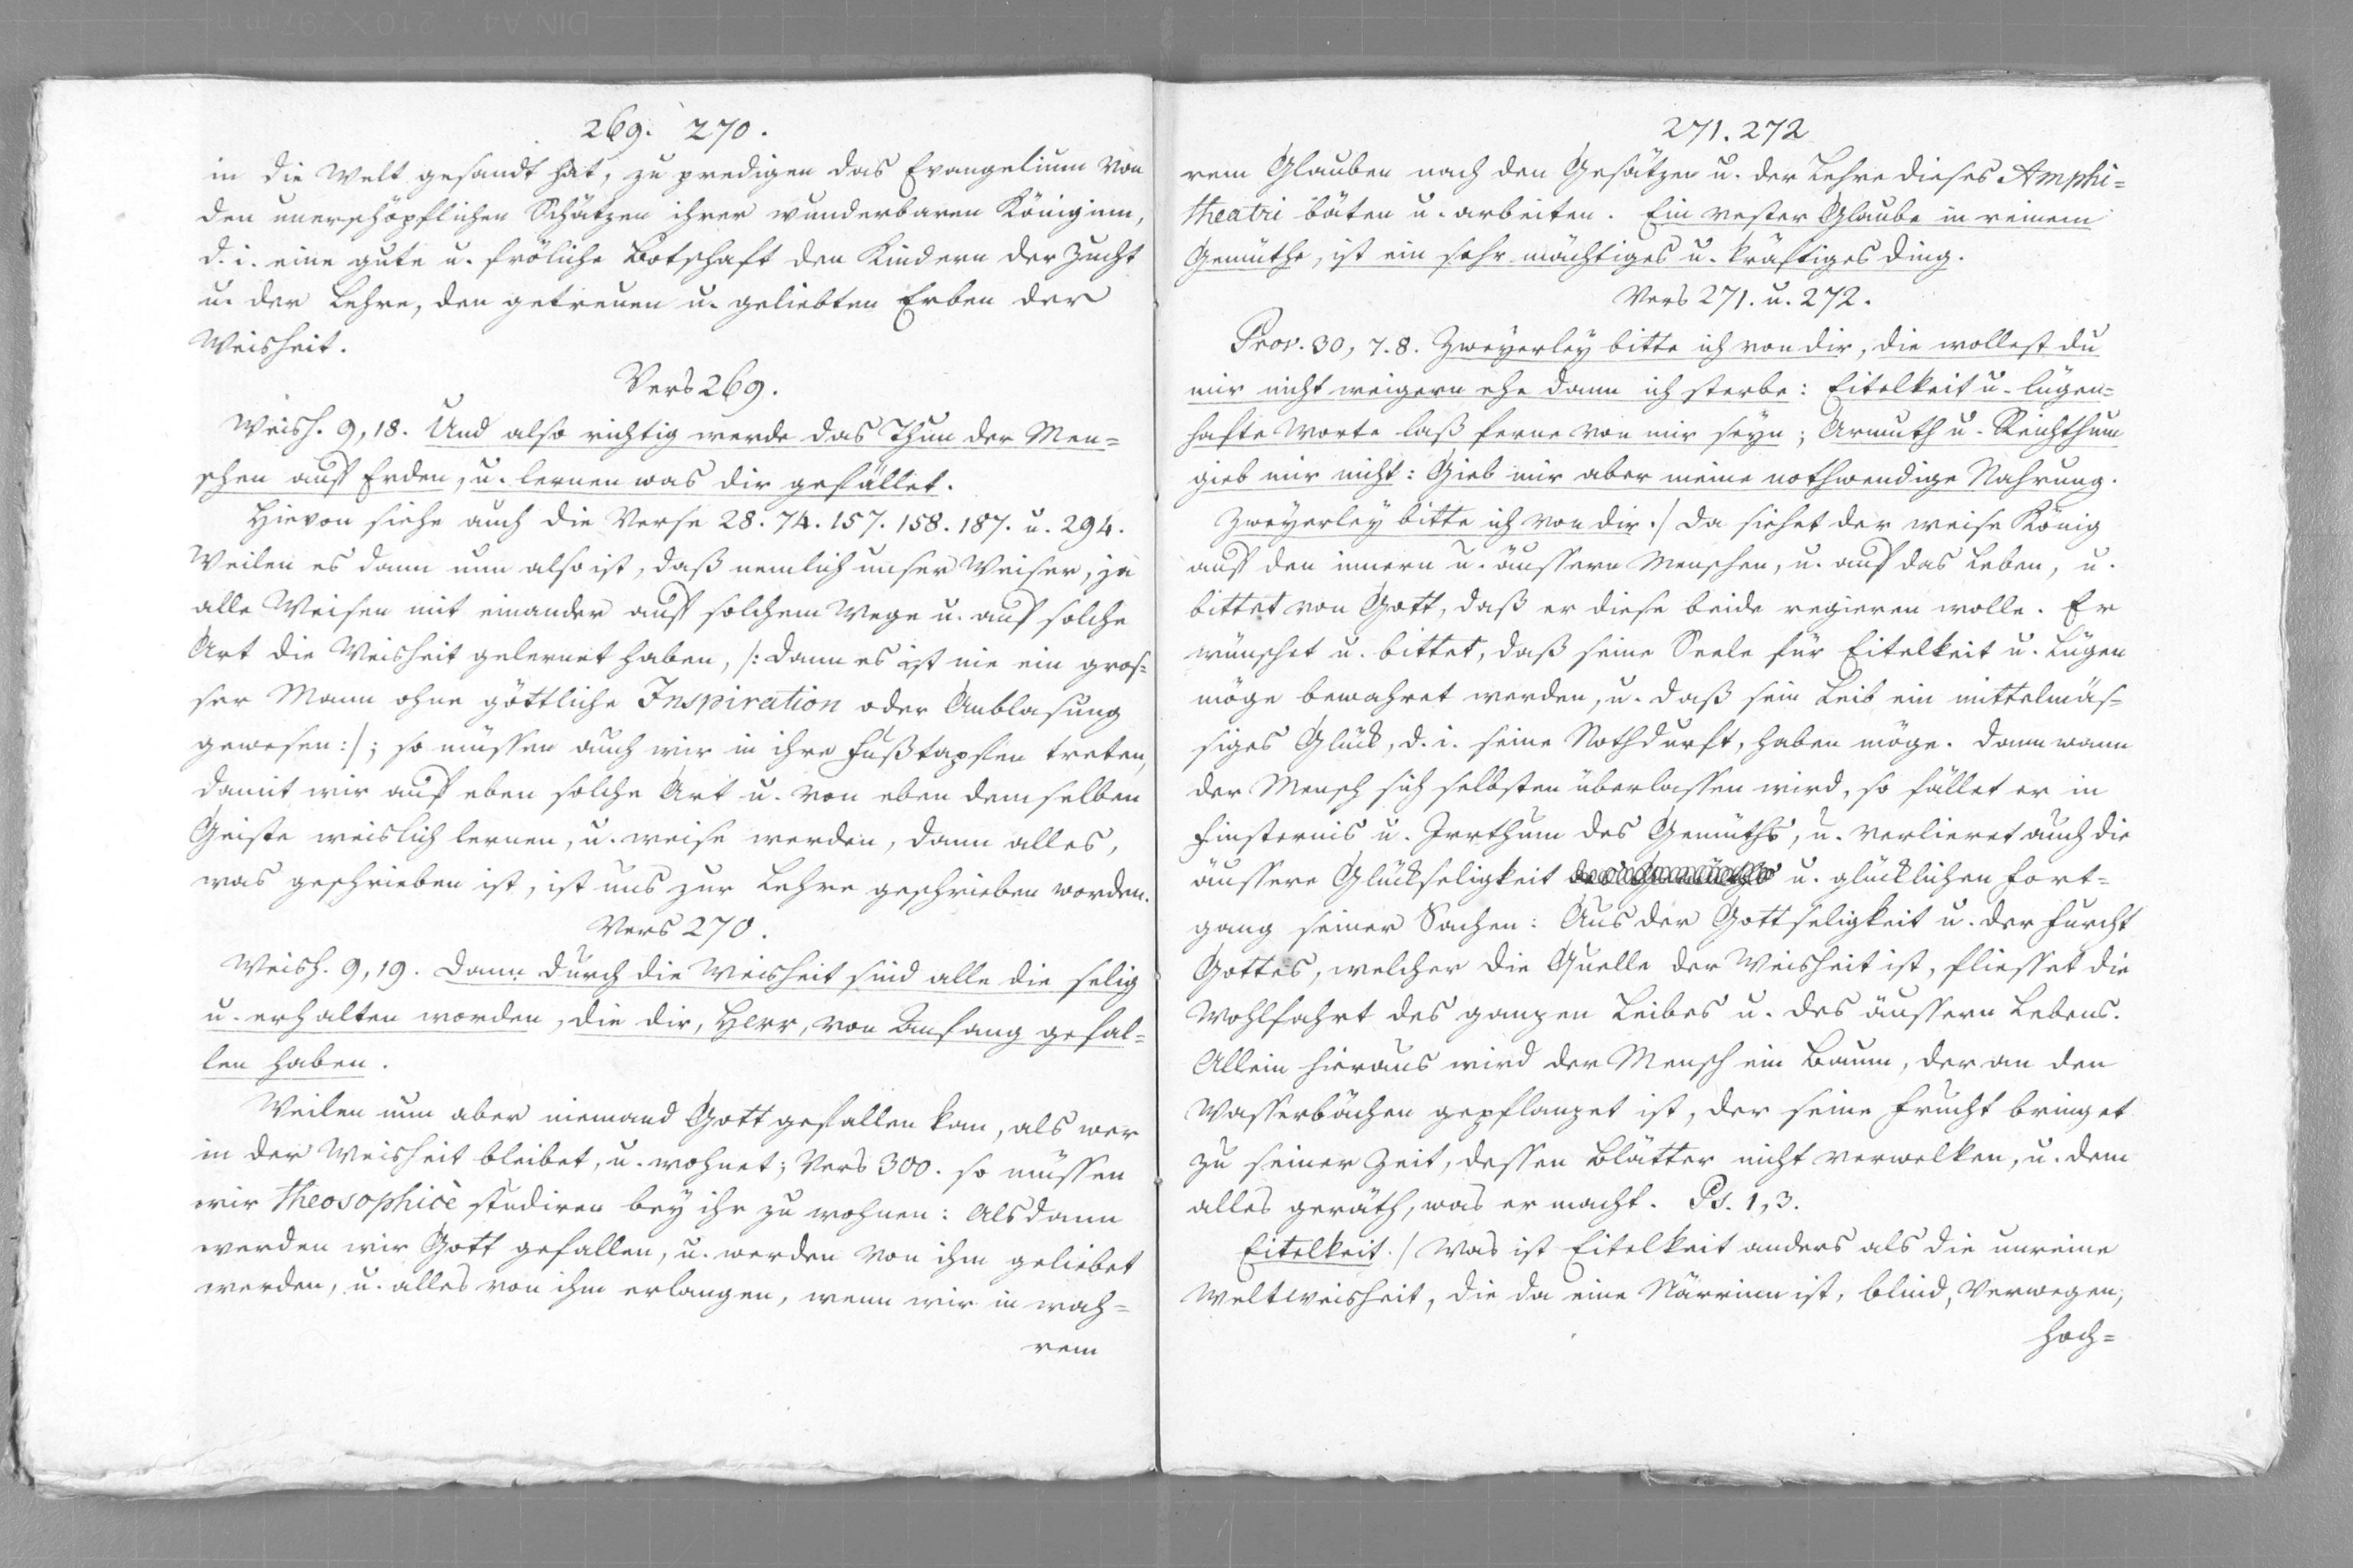 269. 270.
in die Welt gesandt hat, zu predigen das Evangelium von
den unerschöpflichen Schätzen ihrer wunderbaren Königinn,
d. i. eine gute u. fröliche Botschaft den Kindern der Zucht
u. der Lehre, den getreuen u. geliebten Erben der
Weisheit.
Vers 269.
Weish. 9, 18. Und also richtig werde das Thun der Men=
schen auf Erden, u. lernen was dir gefället.
Hievon siehe auch die Verse 28. 74. 157. 158. 187. u. 294.
Weilen es dann nun also ist, daß nemlich unser Weiser, ja
alle Weisen mit einander auf solchem Wege u. auf solche
Art die Weisheit gelernet haben, /: dann es ist nie ein gros=
ser Mann ohne göttliche Inspiration oder Anblasung
gewesen :/; so müssen auch wir in ihre Fußtapfen treten,
damit wir auf eben solche Art u. von eben demselben
Geiste weislich lernen, u. weise werden, dann alles,
was geschrieben ist, ist uns zur Lehre geschrieben worden.
Vers 270.
Weish. 9, 19. Dann durch die Weisheit sind alle die selig
u. erhalten worden, die dir, Herr, von Anfang gefal=
len haben.
Weilen nun aber niemand Gott gefallen kan, als wer
in der Weisheit bleibet, u. wohnet; Vers 300. so müssen
wir theosophicè studiren bey ihr zu wohnen: Alsdann
werden wir Gott gefallen, u. werden von ihm geliebet
werden, u. alles von ihm erlangen, wenn wir in wah=
rem
271. 272
rem Glauben nach den Gesätzen u. der Lehre dieses Amphi=
theatri bäten u. arbeiten. Ein vester Glaube in reinem
Gemüthe, ist ein sehr mächtiges u. kräftiges Ding.
Vers 271. u. 272.
Prov. 30, 7. 8. Zweyerley bitte ich von dir, die wollest du
mir nicht weigern ehe dann ich sterbe: Eitelkeit u. lügen=
hafte Worte laß ferne von mir seyn; Armuth u. Reichthum
gieb mir nicht: Gieb mir aber meine nothwendige Nahrung.
Zweyerley bitte ich von dir./ Da siehet der weise König
auf den innern u. äussern Menschen, u. auf das Leben, u.
bittet von Gott, daß er diese beide regieren wolle. Er
wünschet u. bittet, daß seine Seele für Eitelkeit u. Lügen
möge bewahret werden, u. daß sein Leib ein mittelmäs=
siges Glück, d. i. seine Nothdurft, haben möge. Dann wann
der Mensch sich selbsten überlassen wird, so fället er in
Finsternis u. Irrthum des Gemüths, u. verlieret auch die
äussere Glückseligkeit u. glücklichen Fort=
gang seiner Sachen: Aus der Gottseligkeit u. der Furcht
Gottes, welcher die Quelle der Weisheit ist, fliesset die
Wohlfahrt des ganzen Leibes u. des äussern Lebens.
Allein hieraus wird der Mensch ein Baum, der an den
Wasserbächen gepflanzet ist, der seine Frucht bringet
zu seiner Zeit, dessen Blätter nicht verwelken, u. dem
alles geräth, was er macht. Ps. 1, 3.
Eitelkeit./ Was ist Eitelkeit anders als die unreine
Weltweisheit, die da eine Närrinn ist, blind, verwegen,
hoch=